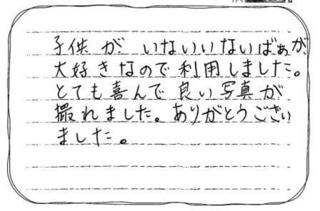 子供が いないいないばぁが
大好きなので利用しました。
とても喜んで良い写真が
撮れました。ありがとうござい
ました。